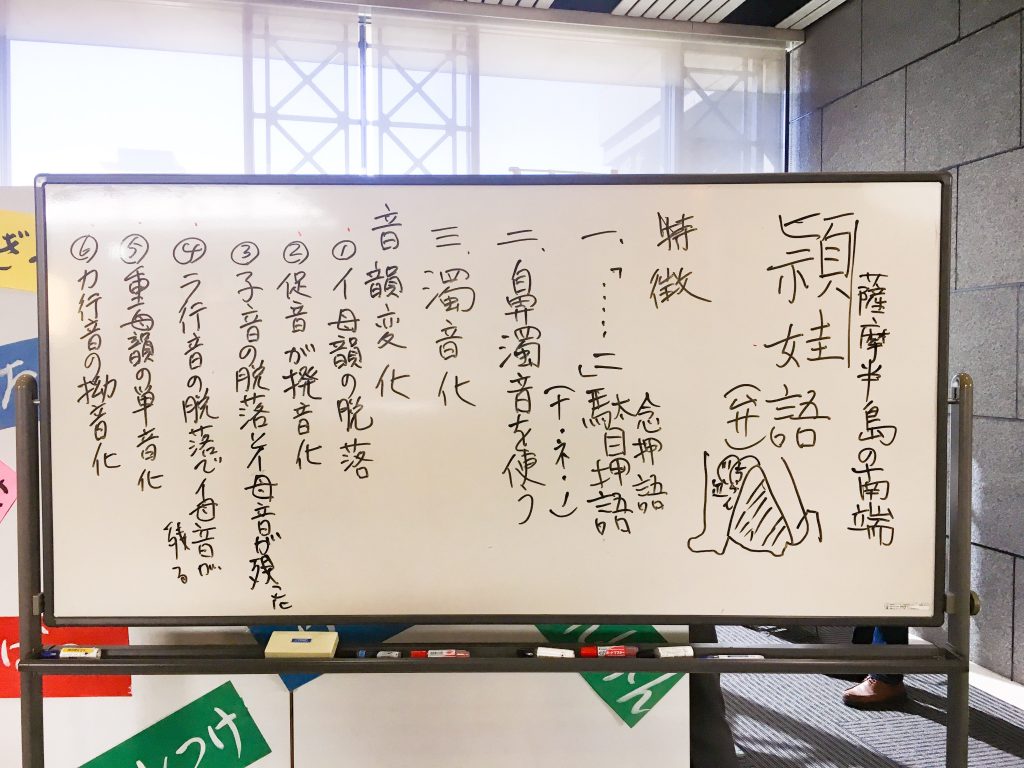 薩摩半島の南端
頴娃語
(弁)
特徴
一、「……に」駄目押語
念押語
(ナ・ネ・ノ)
二、鼻濁音を使う
三、濁音化
音韻変化
①イ母韻の脱落
②促音が撥音化
③子音の脱落とイ母音が残った
④ラ行音の脱落でイ母音が
続る
⑤重母韻の単音化
⑥カ行音の拗音化
つけ